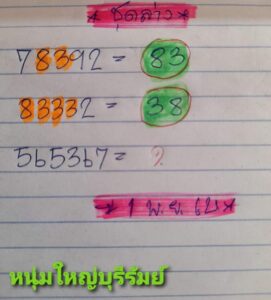 * ชุดล่าง *
78392 = 83
83332 = 38
565367 = ?
* 1 พ.ย. 62 *
หนุ่มใหญ่บุรีรัมย์